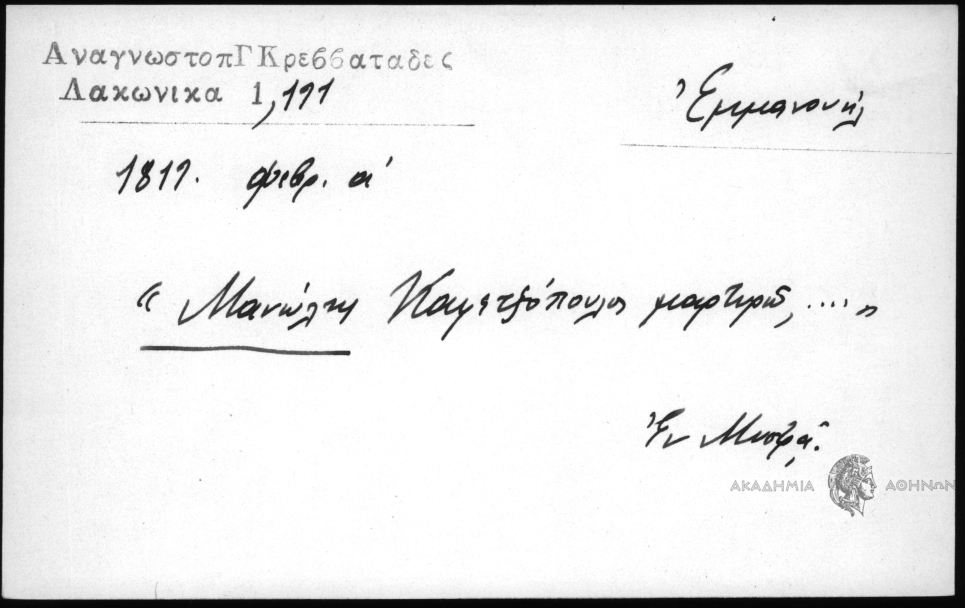 ΑναγνωστοπΓΚρεββαταδες
Λακωνικα 1,191
Ἐμμανουήλ
1819. φεβρ. α'
« Μανώλης Καμετζόπουλος μαρτυρῶ, .... »
Ἐν Μυστρᾷ.
ΑΚΑΔΗΜΙΑ ΑΘΗΝΩΝ